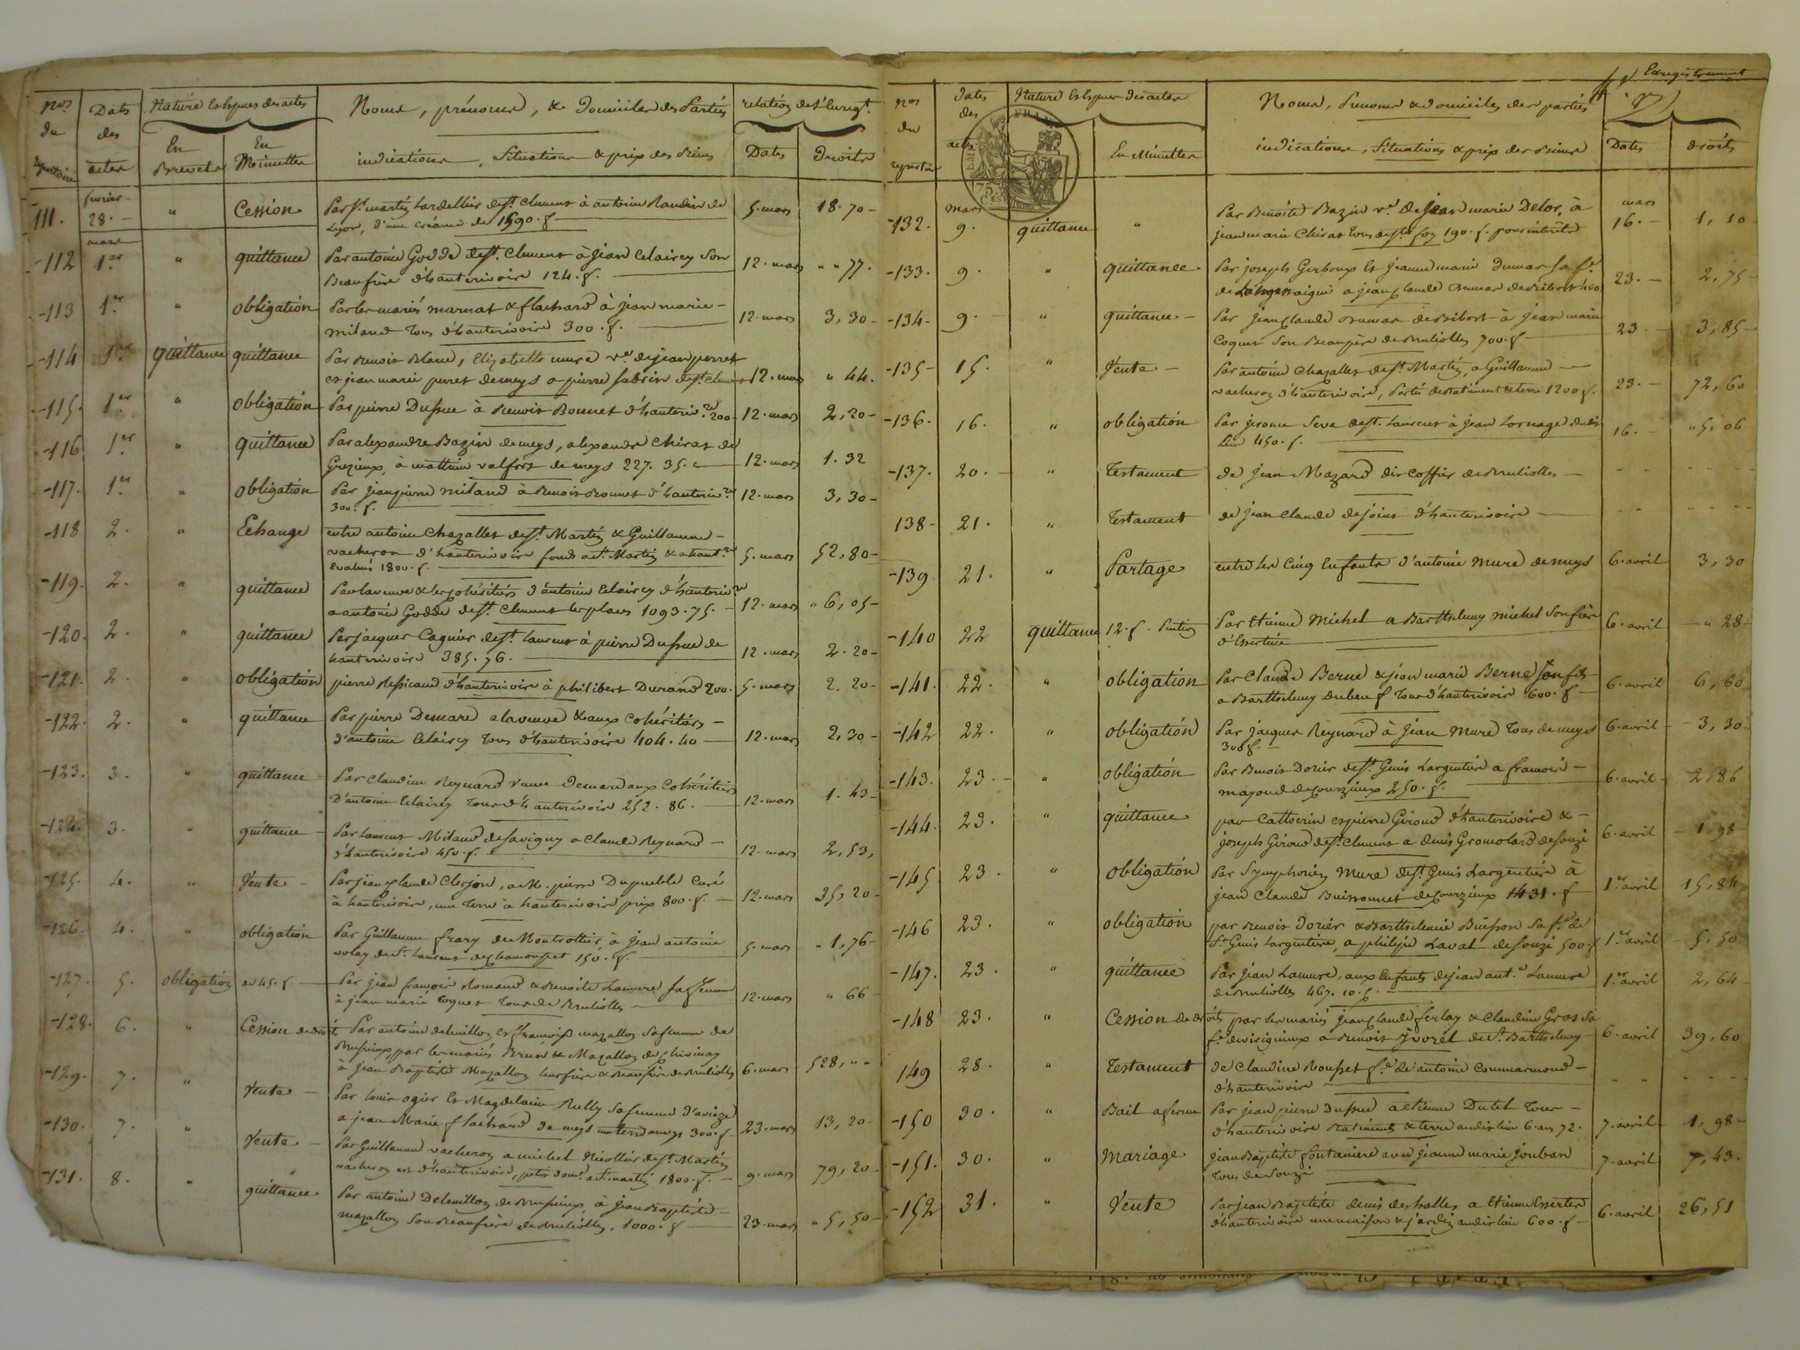 Nos Dates Nature Et Espèces des actes Noms, prénoms, & Domiciles des Parties relation de l'Enregt.
du des
En En
répertoire actes Brevets Minuttes indications, Situations & prix des Biens Dates Droits
111. février 28. " Cession Par Sr. martin Lardellier de St. Clement à antoine Raudin de
Lyon, d'une créance de 1590. f 5. mars 18. 70
mars
112 1.er " quittance Par antoine Godde de St. Clement à Jean Celairey son
Beaufrère d'hauterivoire 124. f. 12. mars " " 77.
113 1.er " obligation Par les mariés marnas & flachard à jean marie
Milaud tous d'hauterivoire 300. f. 12. mars 3, 30
114 1.er quittance quittance Par Benoit Blanc, Elizabette mure ve. de jean perret
et jean marie peret de meys a pierre fabrin de St. Clement 12. mars " 44.
115. 1.er " obligation Par pierre Dufsue à Benoit Bonnet d'hauteriv.re 200 12. mars 2, 20
116 1.er " quittance Par alexandre Bazin de meys, alexandre Chirat de
Grezieux, à mattieu valfort de meys 227. 35. c 12. mars 1. 32
117. 1.er " obligation Par Jean pierre milaud à Benoit Bonnet d'hauteriv.re
300. f. 12. mars 3, 30
118 2. " Echange entre antoine Chazallet de St. Martin & Guillaume
vacheron d'hauterivoire fonds a St. Martin & a haut.re
Evalués 1800. f 5. mars 52, 80
119. 2. " quittance Par la veuve & les Cohéritiers d'antoine Celairey d'hauteriv.re
a antoine Godde de St. Clement les places 1093. 75. 12. mars " 6, 05
120. 2. " quittance Par jacques Cagnier de St. laurent à pierre Dufsue de
hauterivoire 385. 76. 12. mars 2. 20
121. 2. " obligation pierre Ressicaud d'hauterivoire à philibert Durand 200. 5. mars 2. 20
122. 2. " quittance Par pierre Demare a la veuve & aux Cohéritiers
d'antoine Celairey tous d'hauterivoire 404. 40 12. mars 2, 30
123. 3. " quittance Par Claudine Reynard veuve Demare aux Cohéritiers
D'antoine Celairey tous d'hauterivoire 252. 86. 12. mars 1. 43
124. 3. " quittance Par Laurent Milaud de Savigny a Claude Reynard
d'hauterivoire 450. f. 12. mars 2, 53,
125. 4. " Vente Par jean Claude Clerjon, a M. pierre Dupueble Curé
à hauterivoire, une Terre à hauterivoire prix 800. f. 12. mars 35, 20
126. 4. " obligation Par Guillaume frary de Montrottier, à Jean antoine
volay de St. Laurent de Chamousset 150. f. 5. mars 1, 76
127. 5. obligation de 45. f Par Jean françois Romand & Benoite Lamure sa femme
à jean marie Coquet Tous de Brulioles 12. mars " 66
128. 6. " Cession de droit Par antoine deleuillon et françoise mazallon sa femme de
Brussieux, par les mariés Brun & Mazallon de Chivinay
à Jean Baptiste Mazallon leur frère & Beaufrère de Brulioles 6. mars 528, " "
129. 7. " Vente Par louis ogier Et Magdelaine Rully sa femme d'aveize
a jean Marie flachard de meys 300. f. 23. mars 13, 20
130. 7. " Vente Par Guillaume vacheron a michel Nicollier de St. Martin
vacheron est d'hauterivoire, petit dom.e a St. martin 1800. f. 9. mars 79, 20
131. 8. " quittance Par antoine Deleuillon de Brussieux, à Jean Baptiste
mazallon son Beaufrère de Brulioles, 1000. f 23. mars " 5, 50
Nos Dates Nature Et Espèces des actes Noms, Prenoms & domiciles des parties Enregistrement
du des
répertoire actes En Minuttes indications, Situations & prix des Biens Dates droits
FRAN
75 C
132. mars 9. quittance " Par Benoite Bazin ve. de Jean marie Delor, à
jean marie Chirat 190. f. pour intérêts mars 16. 1, 10
133. 9. " quittance Par joseph Gerboux Et jeanne marie Dumas sa fe.
a jean Claude Dumas de Bibost 23. 2, 75
134. 9. " quittance Par jean Claude Dumas de Bibost à Jean marie
Coquet son Beaupère de Brulioles 700. f 23 3, 85
135 15. " Vente Par antoine Chazallet de St. Martin, a Guillaume
vacheron d'hauterivoire, Partie de Batiment & terre 1200 f. 23. 72, 60
136. 16. " obligation Par jerome Seve de St. laurent à jean Lornage dudit
lieu 450. f. 16. " 5, 06
137. 20. " Testament de Jean Mazard dit Coffier de Brulioles
138 21. " Testament de jean Claude de joint d'hauterivoire
139 21. " Partage entre les Cinq Enfants d'antoine Mure de meys 6. avril 3, 30
140 22 quittance 12. f. Par Etienne Michel a Barthelemy michel son frère
d'Essertine 6. avril " 28
141. 22. " obligation Par Claude Berne & jean marie Berne son fils
a Barthelemy Dubeuf tous d'hauterivoire 600. f 6. avril 6, 60
142 22. " obligation Par jacques Reynard à Jean Mure tous de meys
300 f. 6. avril 3, 30
143. 23. " obligation Par Benoit Dorier de St. Genis Largentière a françois
mazoud de Courzieux 250. f. 6. avril 2, 86
144. 23. " quittance par Catherin et pierre Giroud d'hauterivoire &
joseph Giroud de St. Clement a denis Gromolard de Souzi 6. avril 1, 98
145 23. " obligation Par Symphorien Mure de St. Genis Largentière à
jean Claude Buissonnet de Courzieux 1431. f 1.er avril 15, 84
146 23. " obligation par Benoit Dorier & Barthelemie Buisson sa fe. de
St. Genis Largentière, a philipe Laval de Souzi 500. f 1.er avril 5, 50
147. 23. " quittance Par Jean Lamure, aux Enfants de jean ant.e Lamure
de Brulioles 467. 10. f. 1.er avril 2, 64
148 23. " Cession de droits par les mariés jean Claude ferlay & Claudine Gros sa
fe. de virigneux a Benoit Jvorel de St. Barthelemy 6. avril 39, 60
149 28. " Testament de Claudine Rousset fe. de antoine Commarmond
d'hauterivoire
150 30. " Bail a ferme Par jean pierre Dufsud a Etienne Dutel tous
d'hauterivoire Batiments & terre audit lieu 6. ans 72. 7. avril 1, 98
151. 30. " Mariage Jean Baptiste fontaniere avec jeanne marie Jouban
Tous de Souzi 7. avril 7, 43.
152 31. " Vente Par jean Baptiste denis des halles a Etienne Essertel
d'hauterivoire une maison & jardin audit lieu 600. f 6. avril 26, 51